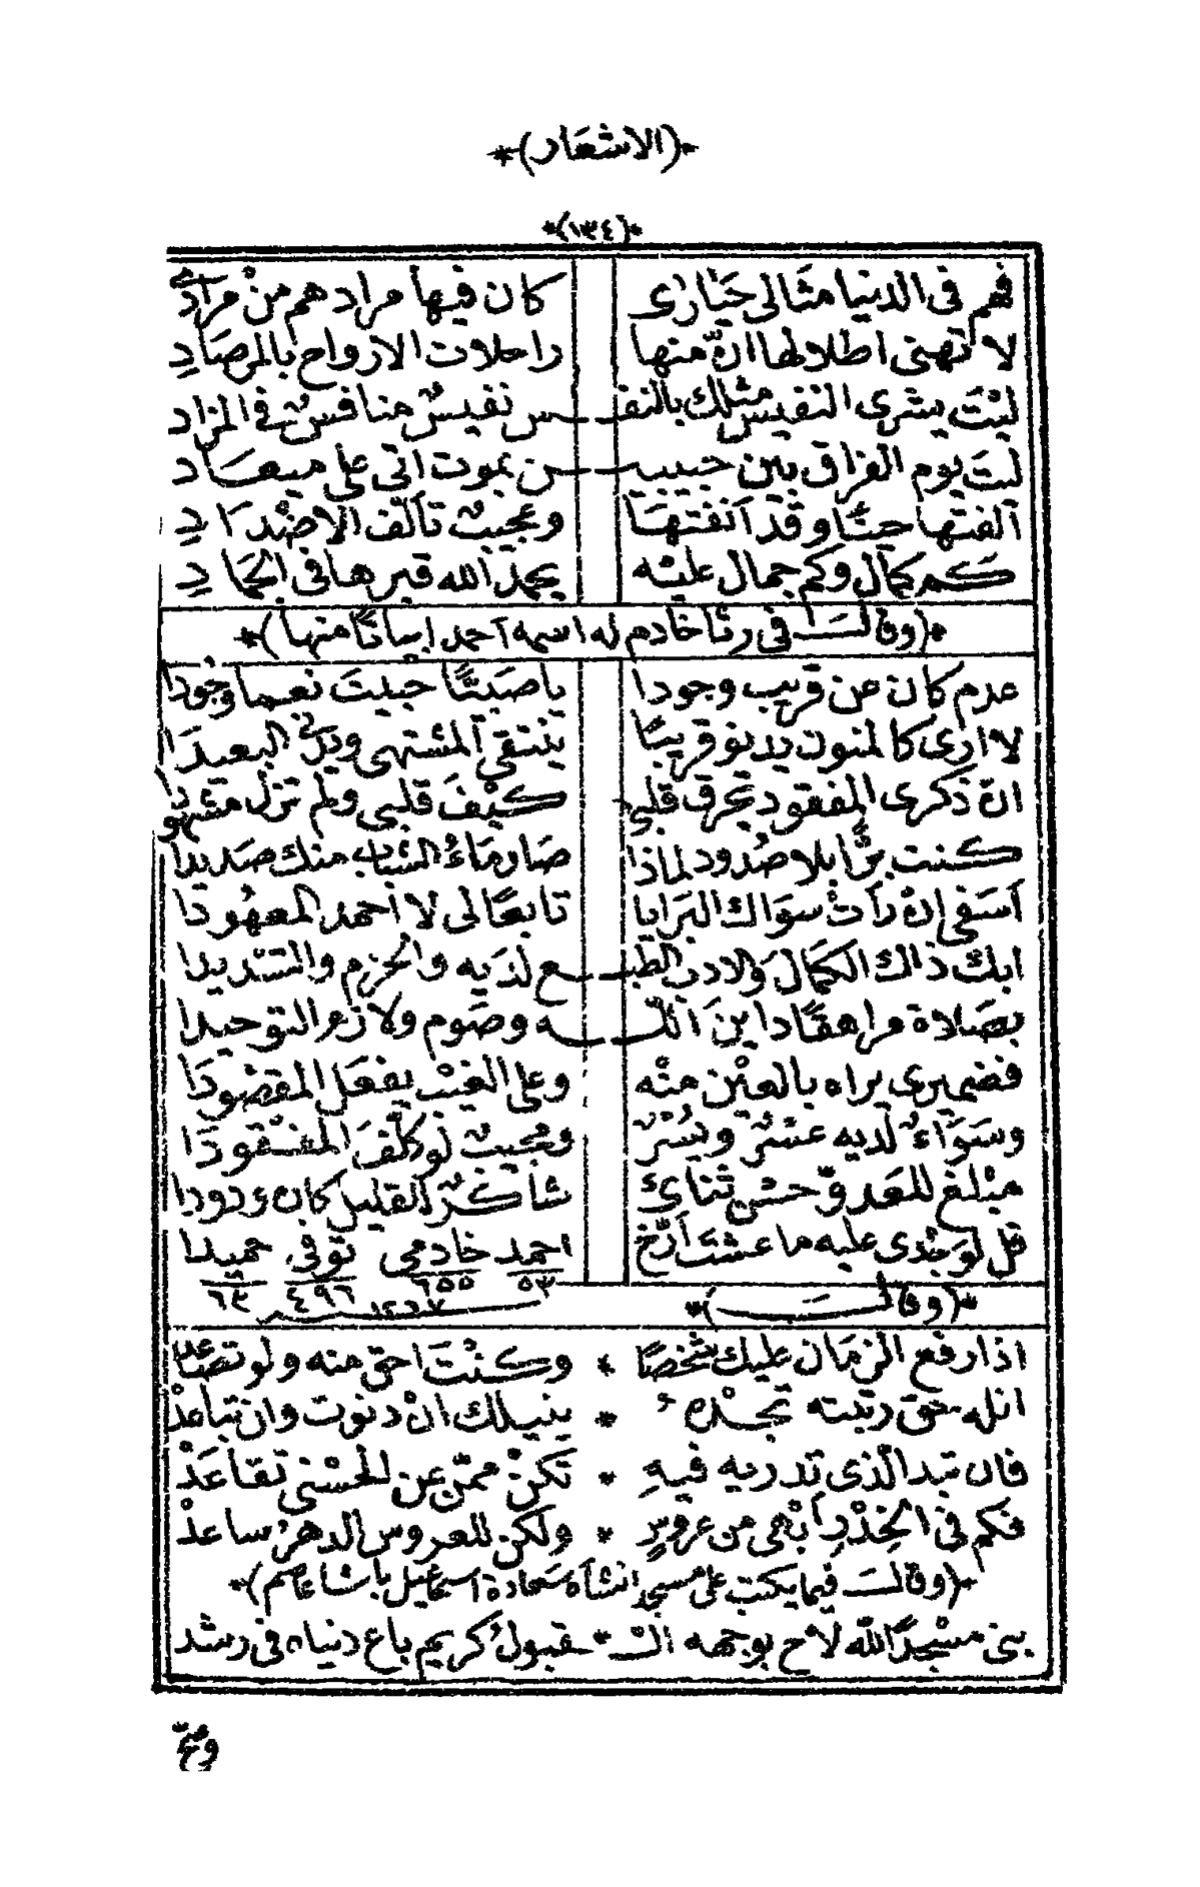 *(الاشعار)*
*(١٣٤)*
فهم فى الدنيا مثالى حيارى كان فيها مرادهم من مرادى
لا تهنى اطلالها ان منها راحلات الارواح بالمرصاد
ليت يشرى النفيس مثلك بالنفـ ـس نفيس منافس فى المزاد
ليت يوم الفراق بين حبيبيـ ـن بموت اتى على ميعاد
الفتها حينا وقد انفتها وعجيب تألف الاضداد
كم كمال وكم جمال عليه يحمد الله قبرها فى الجماد
*(وقال فى رثا خادم له اسمه احمد ابياتا منها)*
عدم كان عن قريب وجودا يا صبيّا حييت نعما وجودا
لا ارى كالمنون يدنو قريبا ينتقى المشتهى ويدنى البعيدا
ان ذكرى المفقود تحرق قلبى كيف قلبى ولم تزل مشهودا
كنت برّا بلا صدود لماذا صار ماء الشباب منك صديدا
اسفى ان رأت سواك البرايا تابعا لى لا احمد المعهودا
ابك ذاك الكمال والادب الطبـ ـع لديه والحزم والتسديدا
بصلاة مراهقا داين اللـ ـه وصوم ولازم التوحيدا
فضميرى يراه بالعين منه وعلى الغيب يفعل المقصودا
وسواء لديه عسر ويسر ومجيب لو كلّف المفقودا
مبلغ للعدوّ حسن ثنائى شاكر القليل كان ودودا
قل لوجدى عليه ما عشت أرّخ احمد خادمى توفى حميدا
٥٣ ٦٥٥ ٤٩٦ ٦٣
١٢٦٧
*(وقال)*
اذا رفع الزمان عليك شخصا * وكنت احق منه ولو تصاعد
انله حق رتبته تجده * ينيلك ان دنوت وان تباعد
فان تبد الّذى تدريه فيه * تكن ممن عن الحسنى تقاعد
فكم فى الخدر أبهى من عروس * ولكن للعروس الدهر ساعد
*(وقال فيما يكتب على مسجد انشأه سعادة اسماعيل باشا عاصم)*
بنى مسجدا لله لاح بوجهه الـ * ـقبول كريم باع دنياه فى رشد